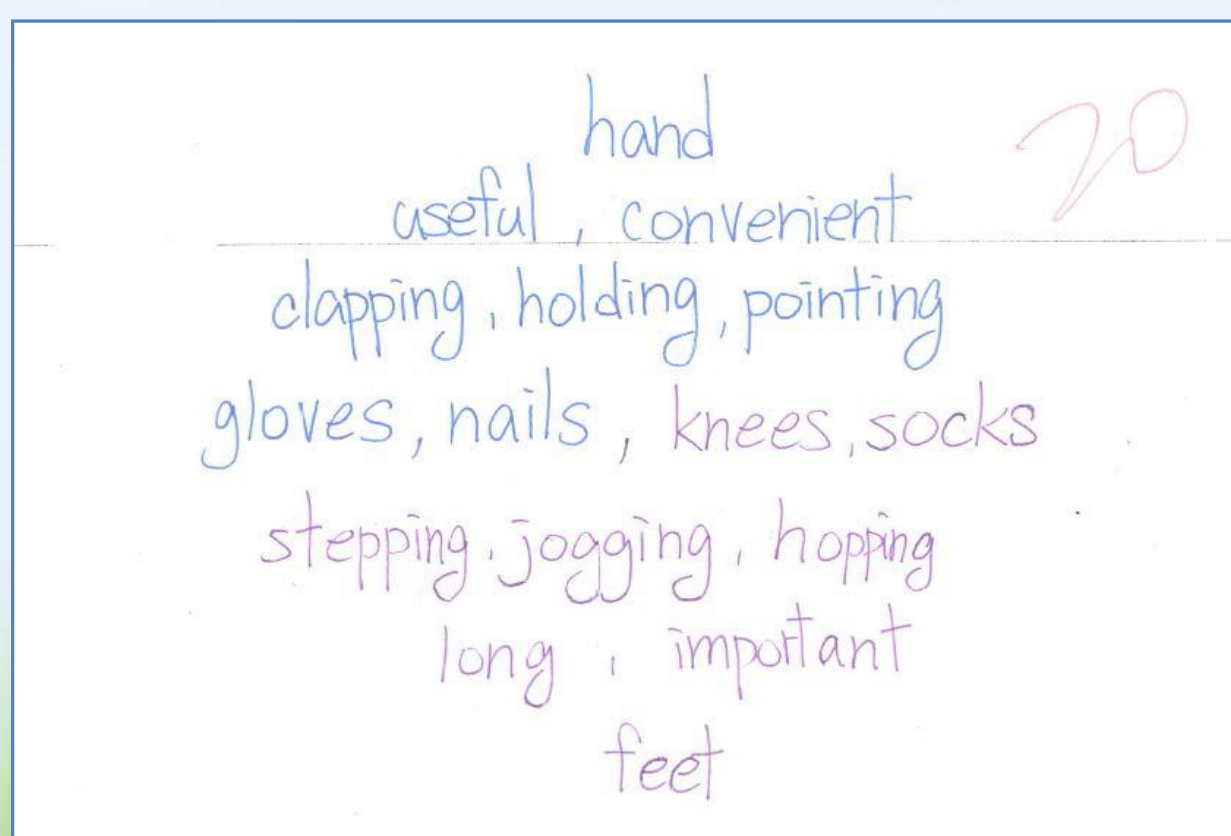 hand 20
useful, convenient
clapping, holding, pointing
gloves, nails, knees, socks
stepping, jogging, hopping
long, important
feet